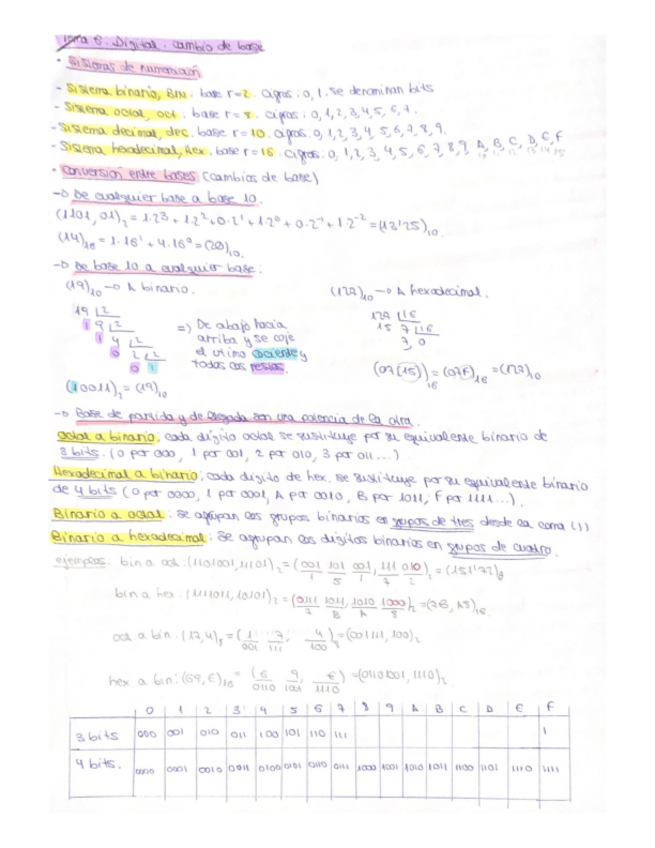 Tema 6. Digital: cambio de base
• Sistemas de numeración
- Sistema binario, BIN: base r=2. cifras: 0, 1. se denominan bits
- Sistema octal, oct: base r=8. cifras: 0, 1, 2, 3, 4, 5, 6, 7.
- Sistema decimal, dec. base r=10. cifras: 0, 1, 2, 3, 4, 5, 6, 7, 8, 9.
- Sistema hexadecimal, Hex. base r=16. cifras: 0, 1, 2, 3, 4, 5, 6, 7, 8, 9, A, B, C, D, E, F
10 11 12 13 14 15
• Conversión entre bases (cambios de base)
→ De cualquier base a base 10.
(1101, 01)₂ = 1·2³ + 1·2² + 0·2¹ + 1·2⁰ + 0·2⁻¹ + 1·2⁻² = (13'25)₁₀.
(14)₁₆ = 1·16¹ + 4·16⁰ = (20)₁₀.
→ De base 10 a cualquier base:
(19)₁₀ → A binario.
19 |2
1 9 |2
1 4 |2
0 2 |2
0 1
=) De abajo hacia
arriba y se coje
el último cociente y
todos los restos.
(10011)₂ = (19)₁₀
(127)₁₀ → A hexadecimal.
127 |16
15 7 |16
7 0
(07(15))₁₆ = (07F)₁₆ = (127)₁₀
→ Base de partida y de llegada son una potencia de la otra.
Octal a binario: cada dígito octal se sustituye por su equivalente binario de
3 bits. (0 por 000, 1 por 001, 2 por 010, 3 por 011...)
Hexadecimal a binario: cada dígito de hex. se sustituye por su equivalente binario
de 4 bits (0 por 0000, 1 por 0001, A por 0010, B por 1011, F por 1111...).
Binario a octal: se agrupan los grupos binarios en grupos de tres desde la coma (,)
Binario a hexadecimal: se agrupan los dígitos binarios en grupos de cuatro.
ejemplos: bin a oct: (1101001,11101)₂ = (001 101 001, 111 010)₂ = (151'72)₈
1 5 1 7 2
bin a hex: (1111011, 10101)₂ = (0111 1011, 1010 1000)₂ = (7B, A8)₁₆
7 B A 8
oct a bin: (17,4)₈ = (1 7, 4)₈ = (001111, 100)₂
001 111 100
hex a bin: (69,E)₁₆ = (6 9, E) = (01101001, 1110)₂
0110 1001 1110
0 1 2 3 4 5 6 7 8 9 A B C D E F
3 bits 000 001 010 011 100 101 110 111 1
4 bits. 0000 0001 0010 0011 0100 0101 0110 0111 1000 1001 1010 1011 1100 1101 1110 1111